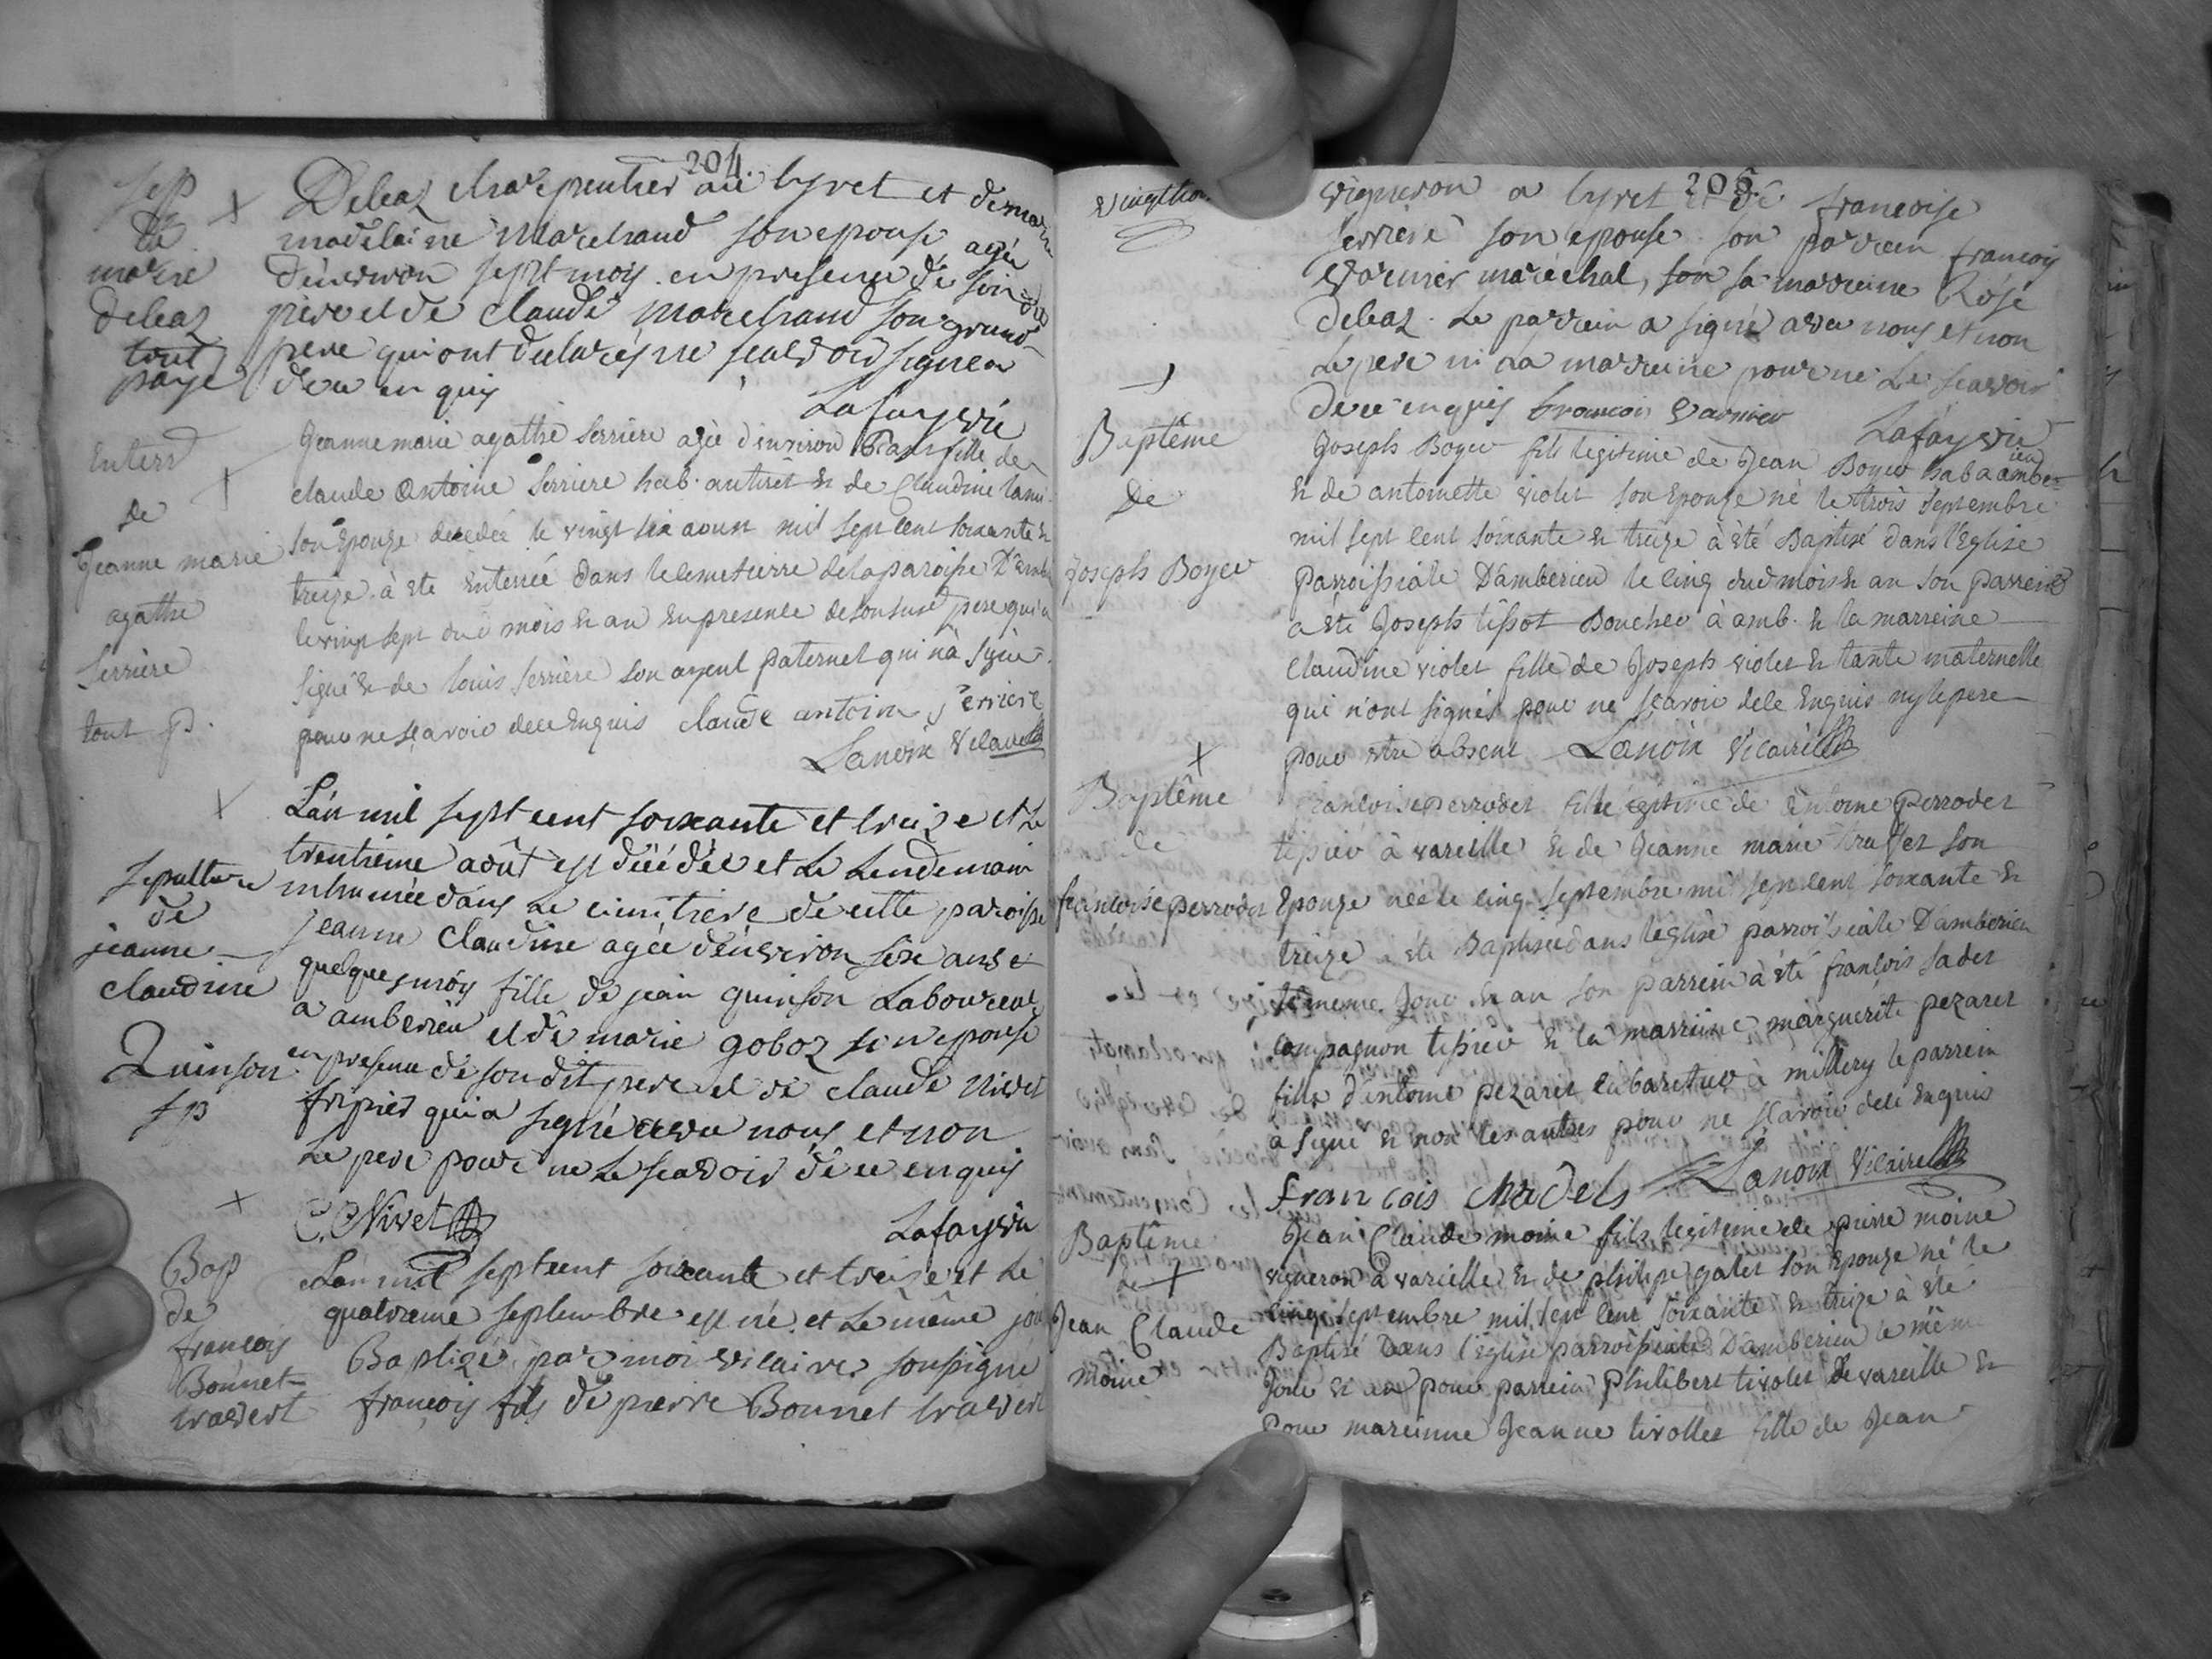 204.
sep
de
marie
deleaz
tout
payé
Deleaz charpentier au tyret et de marie
madelaine marchand son epouse agée
d'environ sept mois en presence de son dit
père et de Claude Marchand son grand
pere qui ont declarés ne scavoir signer
de ce enquis
Lafay vic
Enterr
de
Jeanne marie
agathe
Serrière
tout p.
Jeanne marie agathe Serrière agée d'environ ans fille de
claude antoine Serriere hab. au tiret & de Claudine
son Epouze decedée le vingt six aoust mil sept cent soixante &
treize à eté Enterrée dans le cimetierre de la paroisse D'amb
le vingt sept dud mois & an En presence de son susd pere qui a
signé & de louis serrière son ayeul paternel qui n'à signé
pour ne sçavoir de ce Enquis claude antoine serriere
Lanoix Vicaire
Sepulture
de
jeanne
claudine
Quinson
t p
L'an mil sept cent soixante et treize et le
trentieme août est décédée et le lendemain
inhumée dans le cimetiere de cette paroisse
jeanne Claudine agée d'environ six ans et
quelques mois fille de jean quinson Laboureur
a amberieu et de marie goboz son epouse
en presence de son dit pere et de claude Nivet
fripier qui a signé avec nous et non
Le pere pour ne Le scavoir de ce enquis
C. Nivet
Lafay vic
Bap
de
françois
Bonnet
travert
L'an mil sept cent soixante et treize et le
quatrieme septembre est né et Le même jour
Baptisé par moi vicaire soussigné
françois fils de pierre Bonnet travert
205.
vigneron a tyret et de françoise
serriere son epouse son parrein françois
Varnier maréchal, son sa marreine Rose
deleaz. Le parrein a signé avec nous et non
Le pere ni La marreine pour ne Le scavoir
de ce enquis françois Varnier
Lafay vic
Baptême
De
Joseph Boyer
Joseph Boyer fils legitime de Jean Boyer hab a amberieu
& de antoinette violet son Epouze né le trois septembre
mil sept cent soixante & treize à été Baptisé dans l'Eglise
Parroissiale D'amberieu le cinq dud mois & an son parrein
a été Joseph tissot Boucher à amb. & la marreine
Claudine violet fille de Joseph violet & tante maternelle
qui n'ont signés pour ne sçavoir de ce Enquis ny le pere
pour etre absent Lanoix Vicaire
Baptême
de
françoise perrodet
françoise perrodet fille legitime de Entoine Perrodet
tissier à vareille & de Jeanne marie son
Epouze née le cinq septembre mil sept cent soixante &
treize à été Baptisée dans l'Eglise parroissiale D'amberieu
le meme Jour & an son parrein à été françois
compagnon tissier & la marreine marguerite pezaret
fille d'entoine pezaret cabaretier à millery le parrein
a signé & non les autres pour ne sçavoir de ce Enquis
francois Lanoix Vicaire
Baptême
de
Jean Claude
moine
Jean Claude moine fils legitime de pierre moine
vigneron à vareille & de philipe galet son Epouze né le
cinq septembre mil sept cent soixante & treize à été
Baptisé Dans l'Eglise parroissiale D'amberieu le même
Jour & an pour parrein Philibert tivolet de vareille &
Pour mareinne Jeanne tivollet fille de Jean